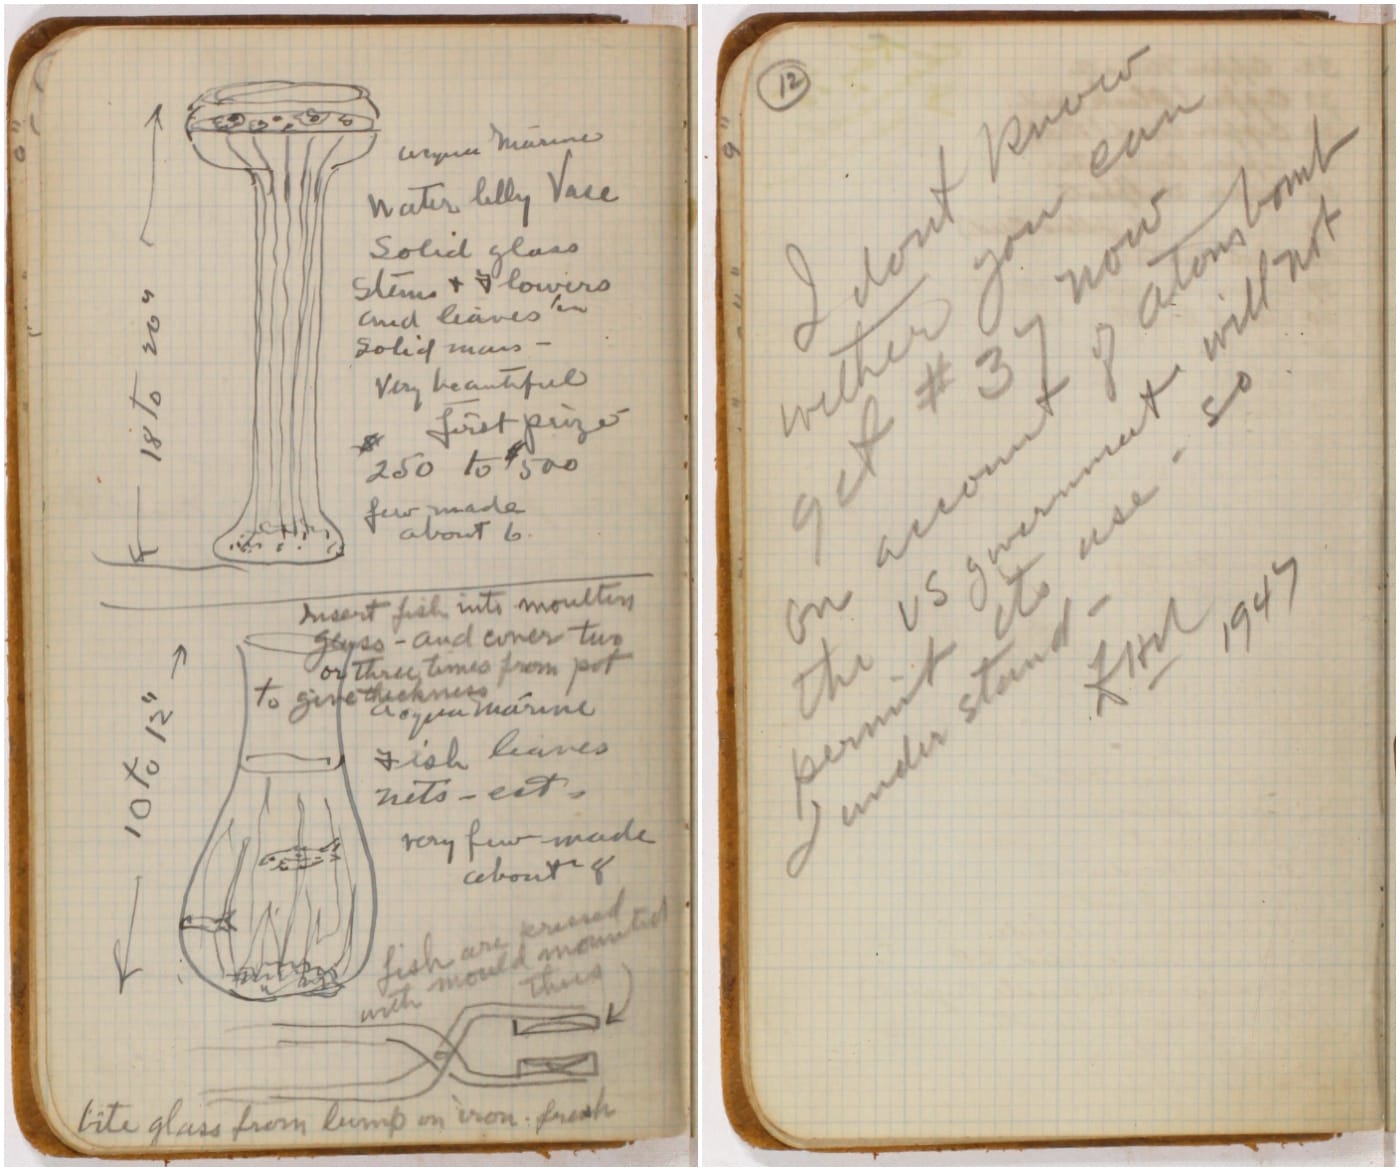 18 to 20"
acqua marine
Water lilly Vase
Solid glass
Stems + Flowers
and leaves in
Solid mass -
Very beautiful
first prize
$250 to $500
few made
about 6.
Insert fish into moulten
glass - and cover two
or three times from pot
to give thickness
10 to 12"
acqua marine
Fish leaves
nets - ect -
very few made
about 8
fish are pressed
with mould mounted
thus
bite glass from lump on iron. fresh
12
9"
I dont know
wether you can
get # 37 now
on account of atomsbomb
the US government will not
permit its use - so
I understand -
1947